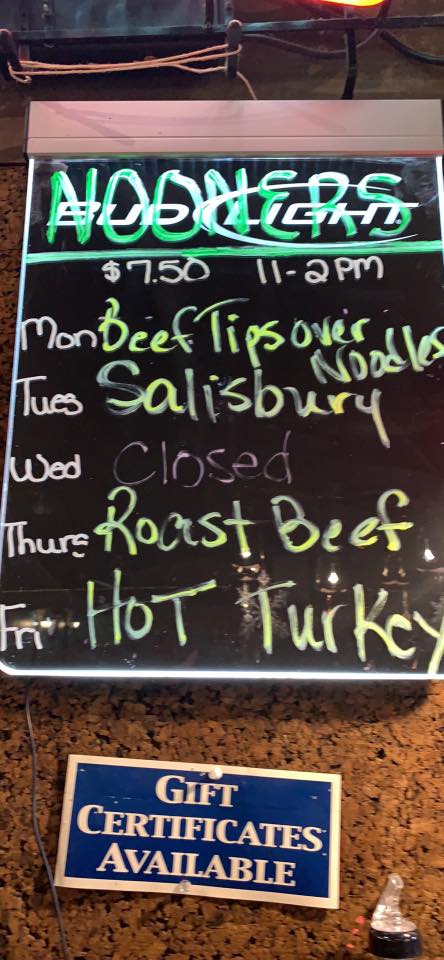 NOONERS
BUD LIGHT
$7.50 11-2PM
Mon Beef Tips over Noodles
Tues Salisbury
Wed Closed
Thurs Roast Beef
Fri HOT Turkey
GIFT
CERTIFICATES
AVAILABLE